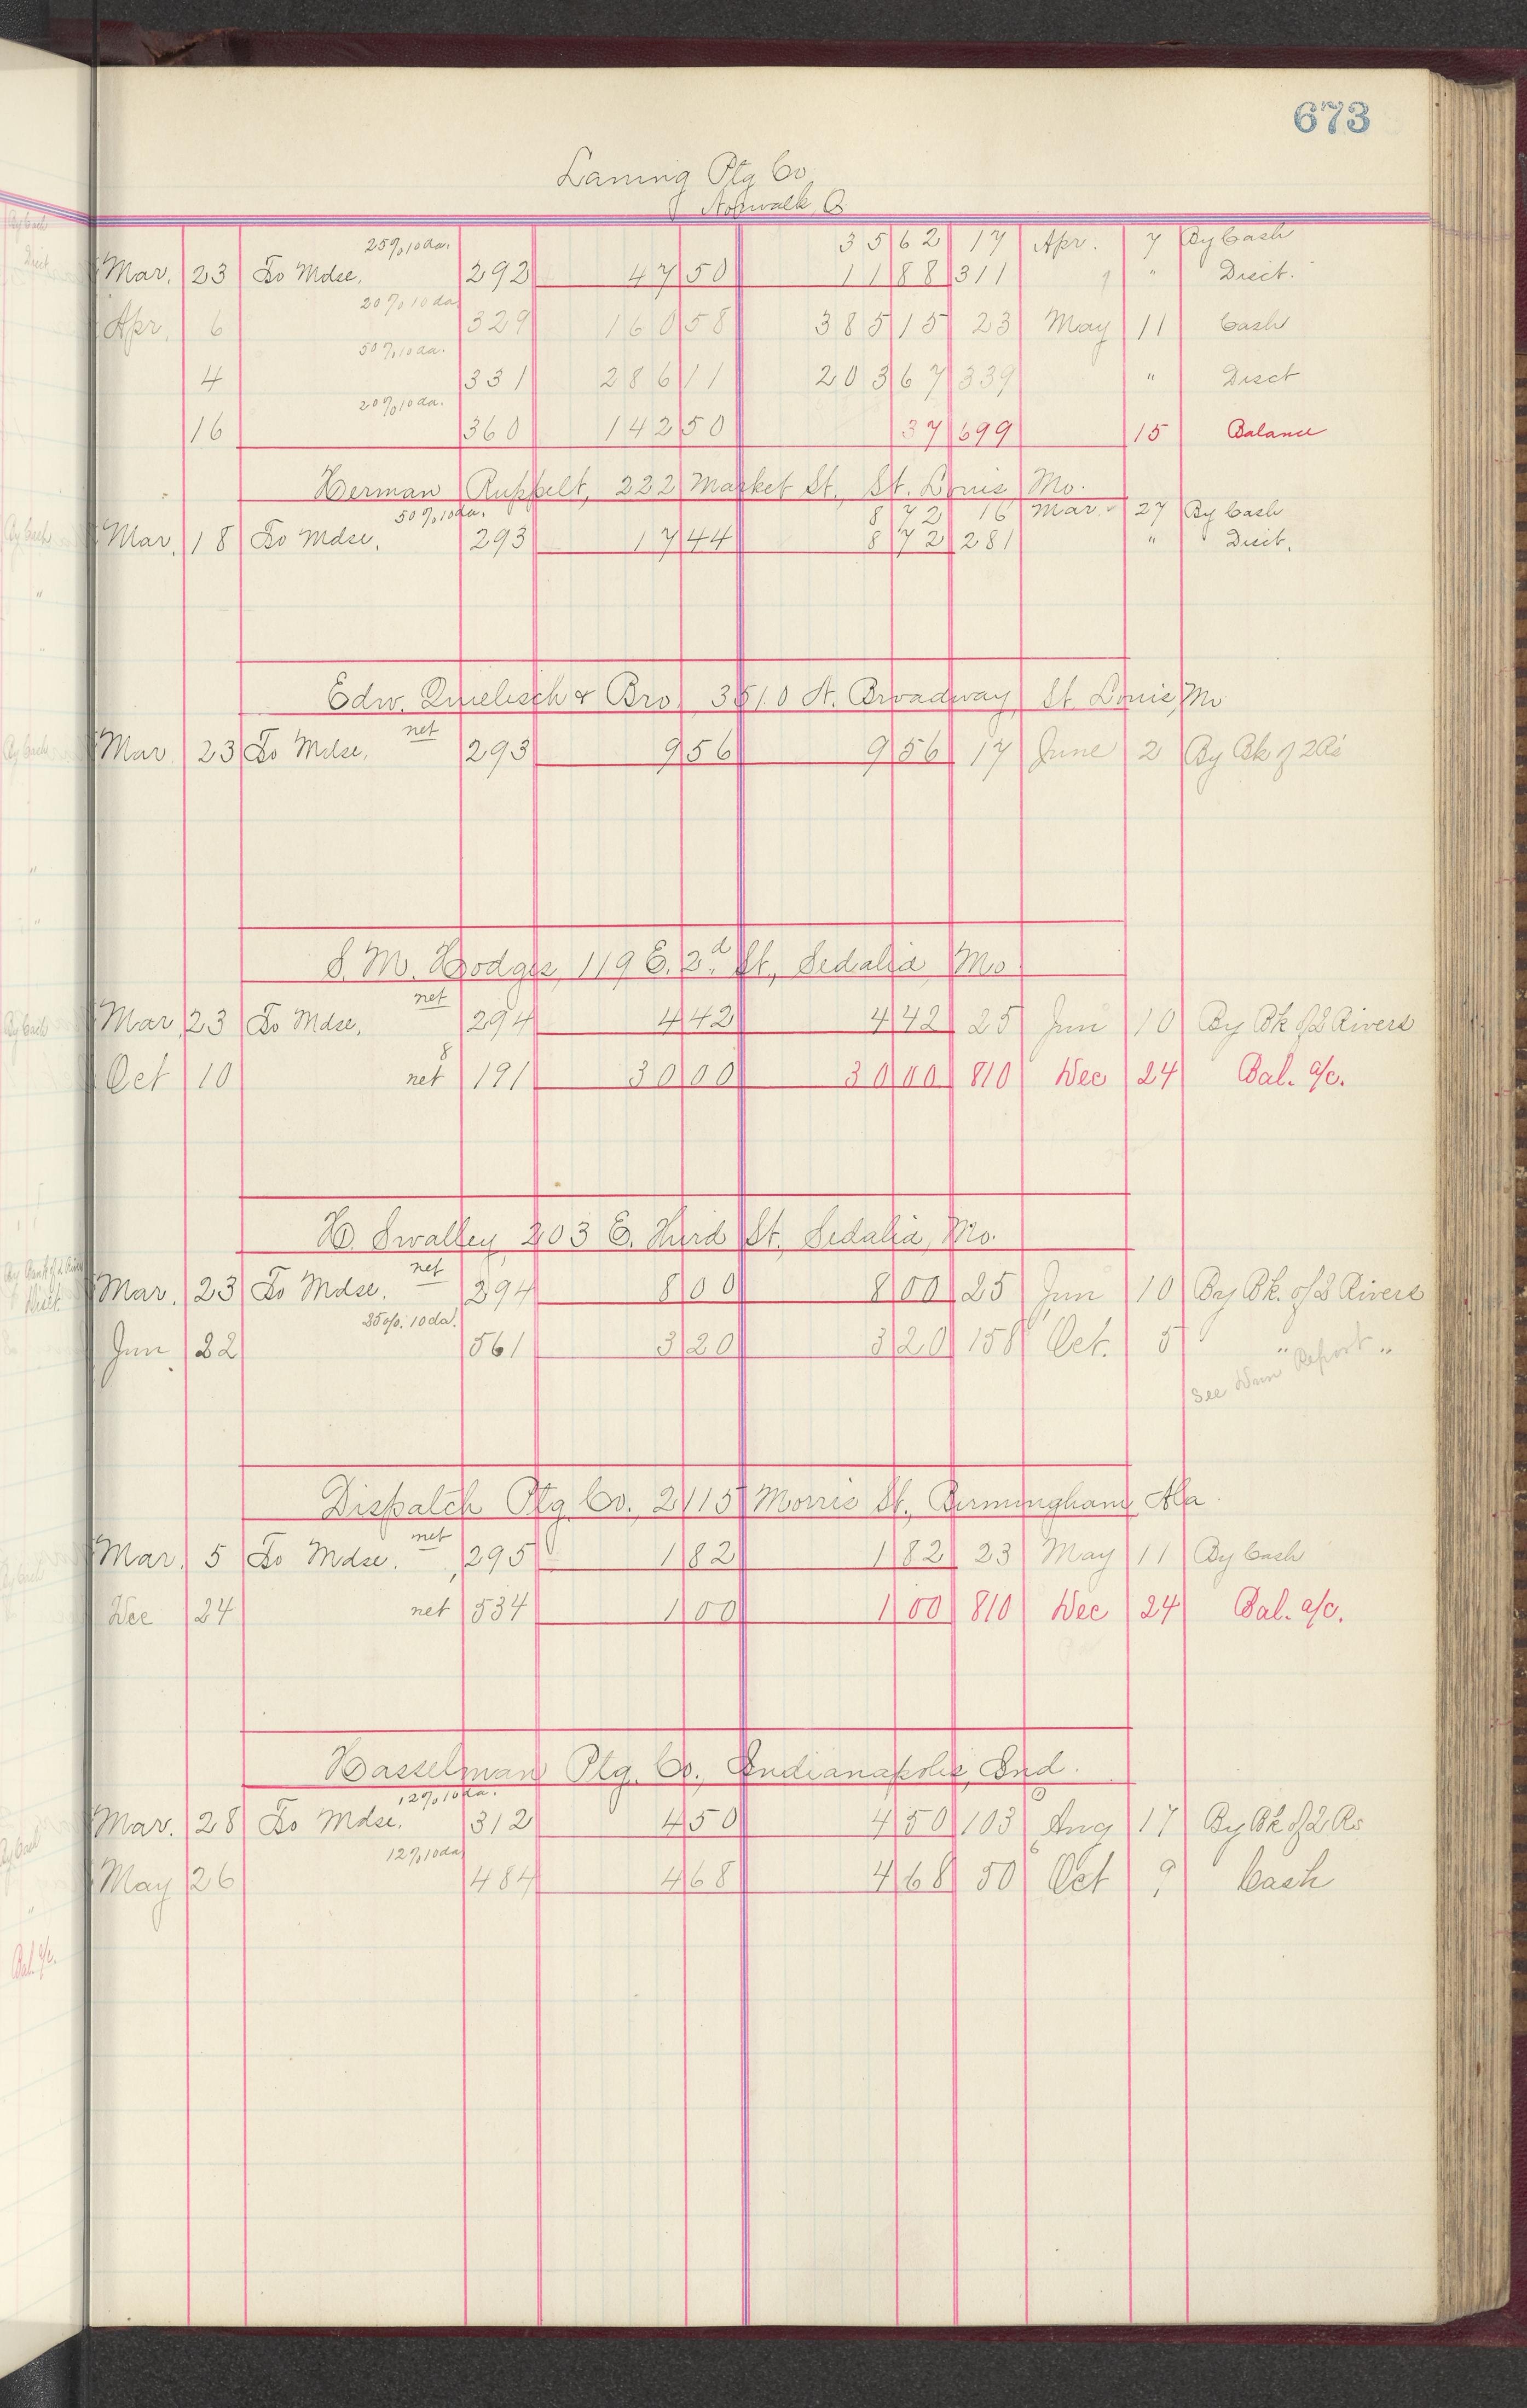 673
Laning Ptg Co
Norwalk, O
25% 10 da. 35 62 17 Apr. 7 By Cash
Mar. 23 To Mdse. 292 47 50 11 88 311 " Disct.
20% 10 da
Apr. 6 329 160 58 385 15 23 May 11 Cash
50% 10 da.
4 331 286 11 203 67 339 " Disct
20% 10 da.
16 360 142 50 37 699 15 Balance
Herman Ruppelt, 222 Market St., St. Louis Mo.
50% 10 da. 8 72 16 Mar. 27 By Cash
Mar. 18 To Mdse. 293 17 44 8 72 281 " Disct.
Edw. & Bro. 3510 N. Broadway, St. Louis, Mo
net
Mar 23 To Mdse. 293 9 56 9 56 17 June 2 By Bk of 2 R's
S. M. Hodges, 119 E. 2d St., Sedalia, Mo
net
Mar. 23 To Mdse, 294 4 42 4 42 25 Jun 10 By Bk of 2 Rivers
8
Oct 10 net 191 30 00 30 00 810 Dec 24 Bal. a/c.
H. Swalley, 203 E. Third St., Sedalia, Mo.
net
Mar. 23 To Mdse. 294 8 00 8 00 25 Jun 10 By Bk. of 2 Rivers
25% 10 da.
Jun 22 561 3 20 3 20 158 Oct. 5 " "
See Dun Report
Dispatch Ptg. Co., 2115 Morris St., Birmingham, Ala.
net
Mar. 5 To Mdse. 295 1 82 1 82 23 May 11 By Cash
Dec 24 net 534 1 00 1 00 810 Dec 24 Bal. a/c.
Hasselman Ptg. Co., Indianapolis, Ind.
12% 10 da.
Mar. 28 To Mdse. 312 4 50 4 50 103 Aug 17 By Bk of 2 Rs
12% 10 da
May 26 484 4 68 4 68 50 Oct 9 Cash